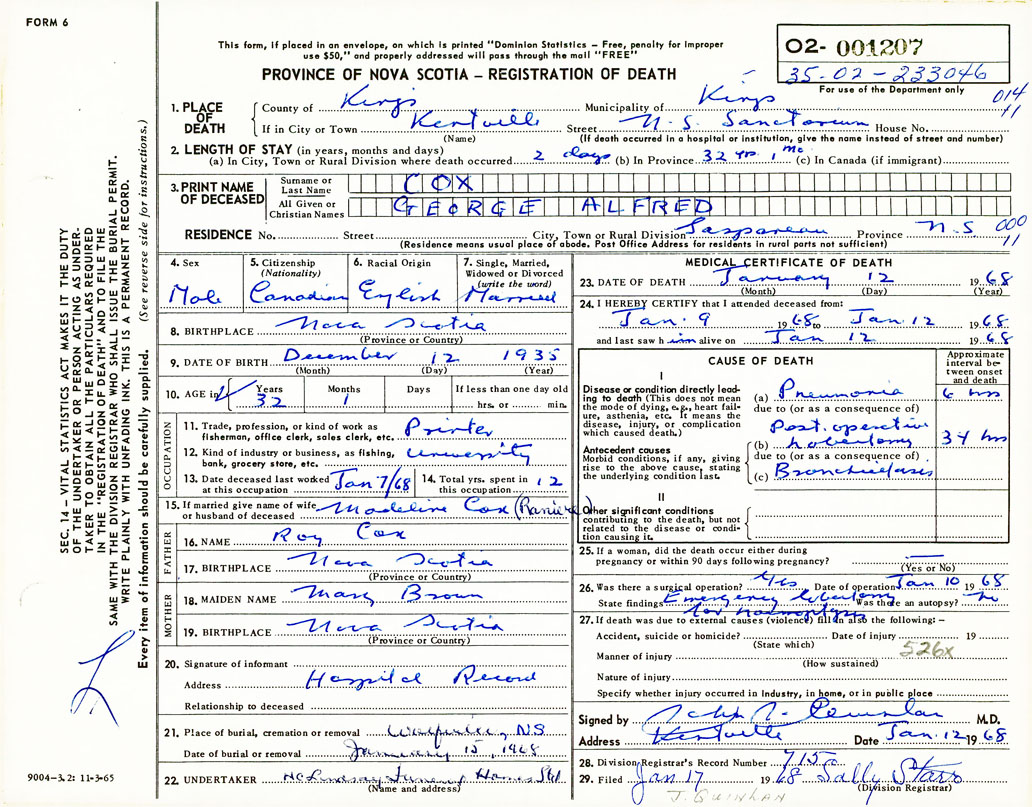 FORM 6
This form, if placed in an envelope, on which is printed "Dominion Statistics – Free, penalty for improper
use $50," and properly addressed will pass through the mail "FREE"
O2- 001207
35-02-233046
For use of the Department only
PROVINCE OF NOVA SCOTIA – REGISTRATION OF DEATH
1. PLACE OF DEATH
County of Kings Municipality of Kings 014
11
If in City or Town Kentville Street N. S. Sanatorium House No.
(Name) (If death occurred in a hospital or institution, give the name instead of street and number)
2. LENGTH OF STAY (in years, months and days)
(a) In City, Town or Rural Division where death occurred 2 days (b) In Province 32 yrs. 1 mo (c) In Canada (if immigrant)
3. PRINT NAME OF DECEASED
Surname or Last Name COX
All Given or Christian Names GEORGE ALFRED
RESIDENCE No. Street City, Town or Rural Division Gaspereau Province N.S. 000
11
(Residence means usual place of abode. Post Office Address for residents in rural parts not sufficient)
4. Sex
Male
5. Citizenship
(Nationality)
Canadian
6. Racial Origin
English
7. Single, Married,
Widowed or Divorced
(write the word)
Married
8. BIRTHPLACE Nova Scotia
(Province or Country)
9. DATE OF BIRTH December 12 1935
(Month) (Day) (Year)
10. AGE in Years Months Days If less than one day old
32 1 hrs. or min.
OCCUPATION
11. Trade, profession, or kind of work as
fisherman, office clerk, sales clerk, etc. Printer
12. Kind of industry or business, as fishing,
bank, grocery store, etc. University
13. Date deceased last worked
at this occupation Jan 7/68
14. Total yrs. spent in
this occupation 12
15. If married give name of wife
or husband of deceased Madeline Cox (Ranier)
FATHER
16. NAME Roy Cox
17. BIRTHPLACE Nova Scotia
(Province or Country)
MOTHER
18. MAIDEN NAME Mary Brown
19. BIRTHPLACE Nova Scotia
(Province or Country)
20. Signature of informant
Address Hospital Record
Relationship to deceased
21. Place of burial, cremation or removal Wolfville, NS
Date of burial or removal January 15, 1968
22. UNDERTAKER Lindsay Funeral Home
(Name and address)
MEDICAL CERTIFICATE OF DEATH
23. DATE OF DEATH January 12 1968
(Month) (Day) (Year)
24. I HEREBY CERTIFY that I attended deceased from:
Jan. 9 1968 to Jan. 12 1968
and last saw him alive on Jan 12 1968
CAUSE OF DEATH
Approximate
interval be-
tween onset
and death
I
Disease or condition directly lead-
ing to death (This does not mean
the mode of dying, e.g., heart fail-
ure, asthenia, etc. It means the
disease, injury, or complication
which caused death.)
(a) Pneumonia 6 hrs
due to (or as a consequence of)
Post. operative
(b) lobectomy 34 hrs
Antecedent causes
Morbid conditions, if any, giving
rise to the above cause, stating
the underlying condition last.
due to (or as a consequence of)
(c) Bronchiectasis
II
Other significant conditions
contributing to the death, but not
related to the disease or condi-
tion causing it.
25. If a woman, did the death occur either during
pregnancy or within 90 days following pregnancy?
(Yes or No)
26. Was there a surgical operation? Yes Date of operation Jan 10 1968
State findings Emergency lobectomy Was there an autopsy? no
for haemoptysis
27. If death was due to external causes (violence) fill in also the following: –
Accident, suicide or homicide? Date of injury 19
(State which)
Manner of injury 526x
(How sustained)
Nature of injury
Specify whether injury occurred in industry, in home, or in public place
Signed by M.D.
Address Kentville Date Jan. 12 1968
28. Division Registrar's Record Number 7150
29. Filed Jan 17 1968 Sally Starr
(Division Registrar)
J. QUINLAN
SEC. 14 – VITAL STATISTICS ACT MAKES IT THE DUTY
OF THE UNDERTAKER OR PERSON ACTING AS UNDER-
TAKER TO OBTAIN ALL THE PARTICULARS REQUIRED
IN THE "REGISTRATION OF DEATH" AND TO FILE THE
SAME WITH THE DIVISION REGISTRAR WHO SHALL ISSUE THE BURIAL PERMIT.
WRITE PLAINLY WITH UNFADING INK. THIS IS A PERMANENT RECORD.
Every item of information should be carefully supplied. (See reverse side for instructions.)
9004-3.2: 11-3-65